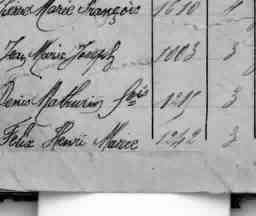 Pierre Marie François 1610 4
Jean Marie Joseph 1003 3
Denis Mathurin fris 1215 3
Félix Henri Marie 1242 3